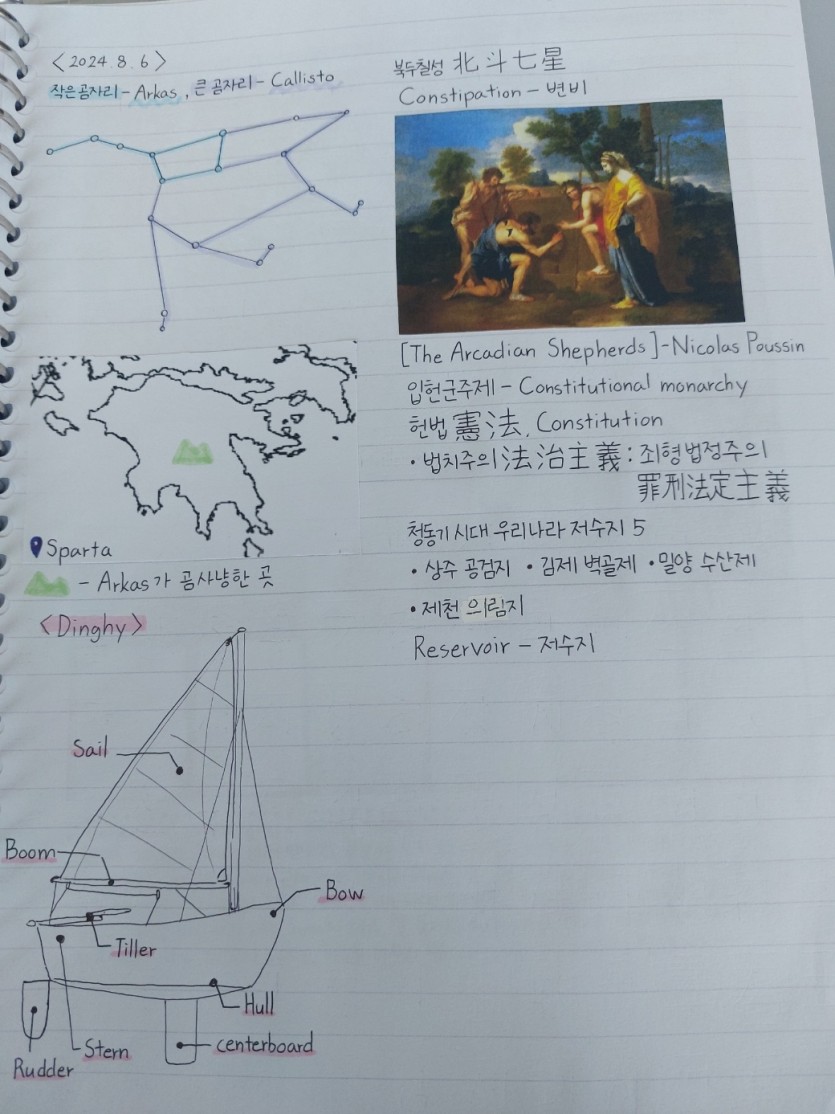 <2024 8.6>
작은곰자리-Arkas, 큰곰자리-Callisto
Sparta
- Arkas가 곰사냥한 곳
<Dinghy>
Sail
Boom
Bow
Tiller
Hull
Stern
centerboard
Rudder
북두칠성 北斗七星
Constipation - 변비
[The Arcadian Shepherds]-Nicolas Poussin
입헌군주제 - Constitutional monarchy
헌법 憲法, Constitution
· 법치주의 法治主義 : 죄형법정주의
罪刑法定主義
청동기 시대 우리나라 저수지 5
· 상주 공검지 · 김제 벽골제 · 밀양 수산제
· 제천 의림지
Reservoir - 저수지